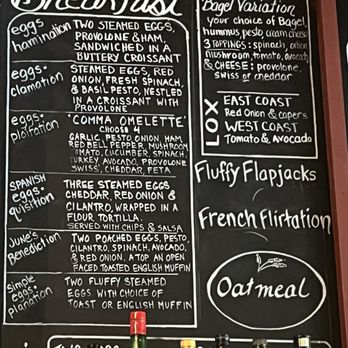 Breakfast
eggs·
hamination
TWO STEAMED EGGS,
PROVOLONE & HAM,
SANDWICHED IN A
BUTTERY CROISSANT
eggs·
clamation
STEAMED EGGS, RED
ONION, FRESH SPINACH,
& BASIL PESTO, NESTLED
IN A CROISSANT WITH
PROVOLONE
eggs·
ploitation
"COMMA OMELETTE"
CHOOSE 4
GARLIC, PESTO, ONION, HAM
RED BELL PEPPER, MUSHROOM
TOMATO, CUCUMBER, SPINACH,
TURKEY, AVOCADO, PROVOLONE
SWISS, CHEDDAR, FETA
SPANISH
eggs·
quisition
THREE STEAMED EGGS
CHEDDAR, RED ONION &
CILANTRO, WRAPPED IN A
FLOUR TORTILLA.
SERVED WITH CHIPS & SALSA
JUNE'S
Benediction
TWO POACHED EGGS, PESTO,
CILANTRO, SPINACH, AVOCADO,
& RED ONION, ATOP AN OPEN
FACED TOASTED ENGLISH MUFFIN
Simple
eggs·
planation
TWO FLUFFY STEAMED
EGGS WITH CHOICE OF
TOAST OR ENGLISH MUFFIN
Bagel Variation
your choice of Bagel,
hummus, pesto, cream cheese
3 TOPPINGS: spinach, onion
mushroom, tomato, avocado
& CHEESE: provolone,
swiss or cheddar
LOX
EAST COAST
Red Onion & capers
WEST COAST
Tomato & Avocado
Fluffy Flapjacks
French Flirtation
Oatmeal